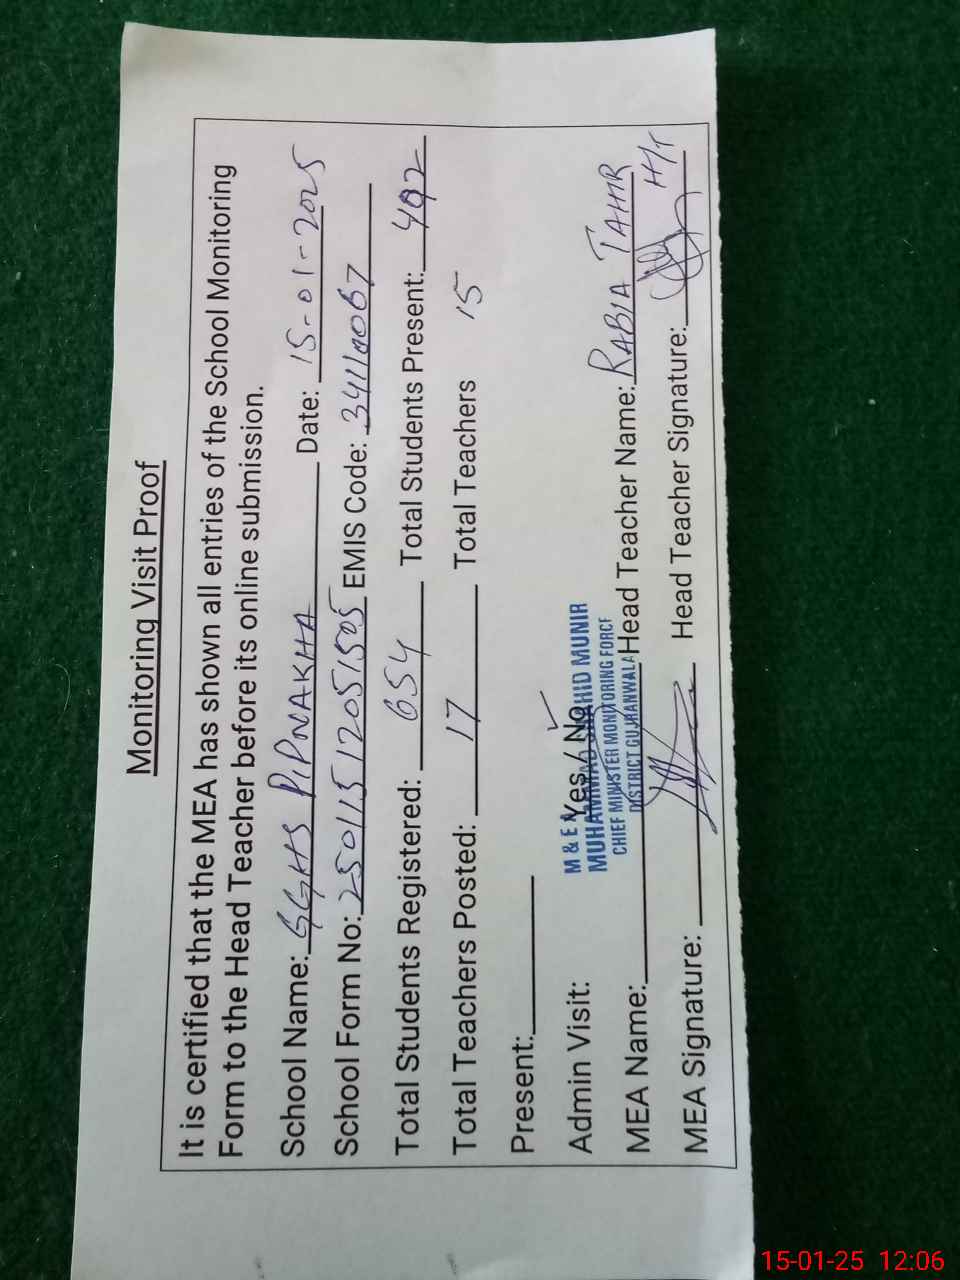 Monitoring Visit Proof
It is certified that the MEA has shown all entries of the School Monitoring
Form to the Head Teacher before its online submission.
School Name: GGHS PIPNAKHA Date: 15-01-2025
School Form No: 25011512051505 EMIS Code: 34110067
Total Students Registered: 654 Total Students Present: 492
Total Teachers Posted: 17 Total Teachers 15
Present:
Admin Visit: Yes / No ✓
M & E
MUHAMMAD MUNIR
CHIEF MINISTER MONITORING FORCE
DISTRICT GUJRANWALA
MEA Name: Head Teacher Name: RABIA TAHIR
MEA Signature: Head Teacher Signature: H/T
15-01-25 12:06